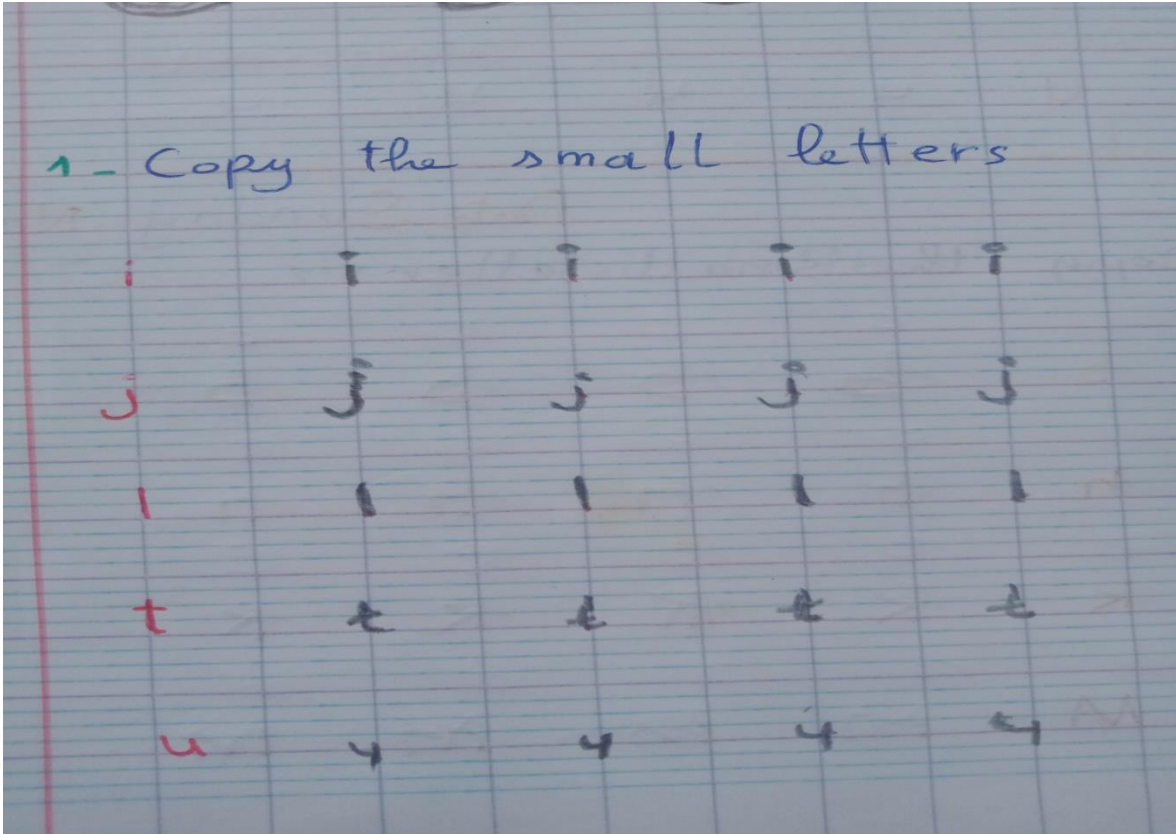 1- Copy the small letters
i i i i i
j j j j j
l l l l l
t t t t t
u 4 4 4 4